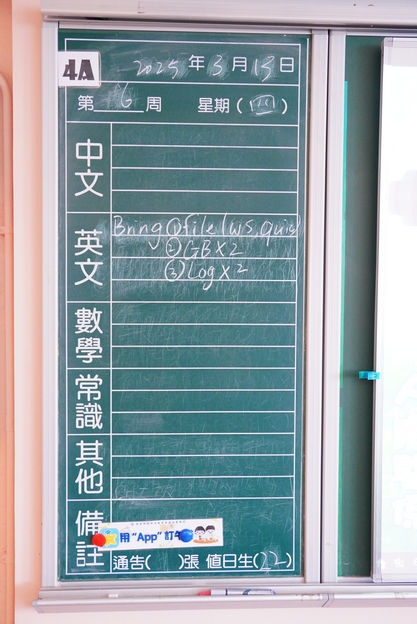 4A
2025 年 3 月 13 日
第 16 周 星期 ( 四 )
中文
英文
Bring ① file (ws, quiz)
② GB x 2
③ Log x 2
數學
常識
其他
備註
用 "App" 訂午
通告( )張 值日生(22)